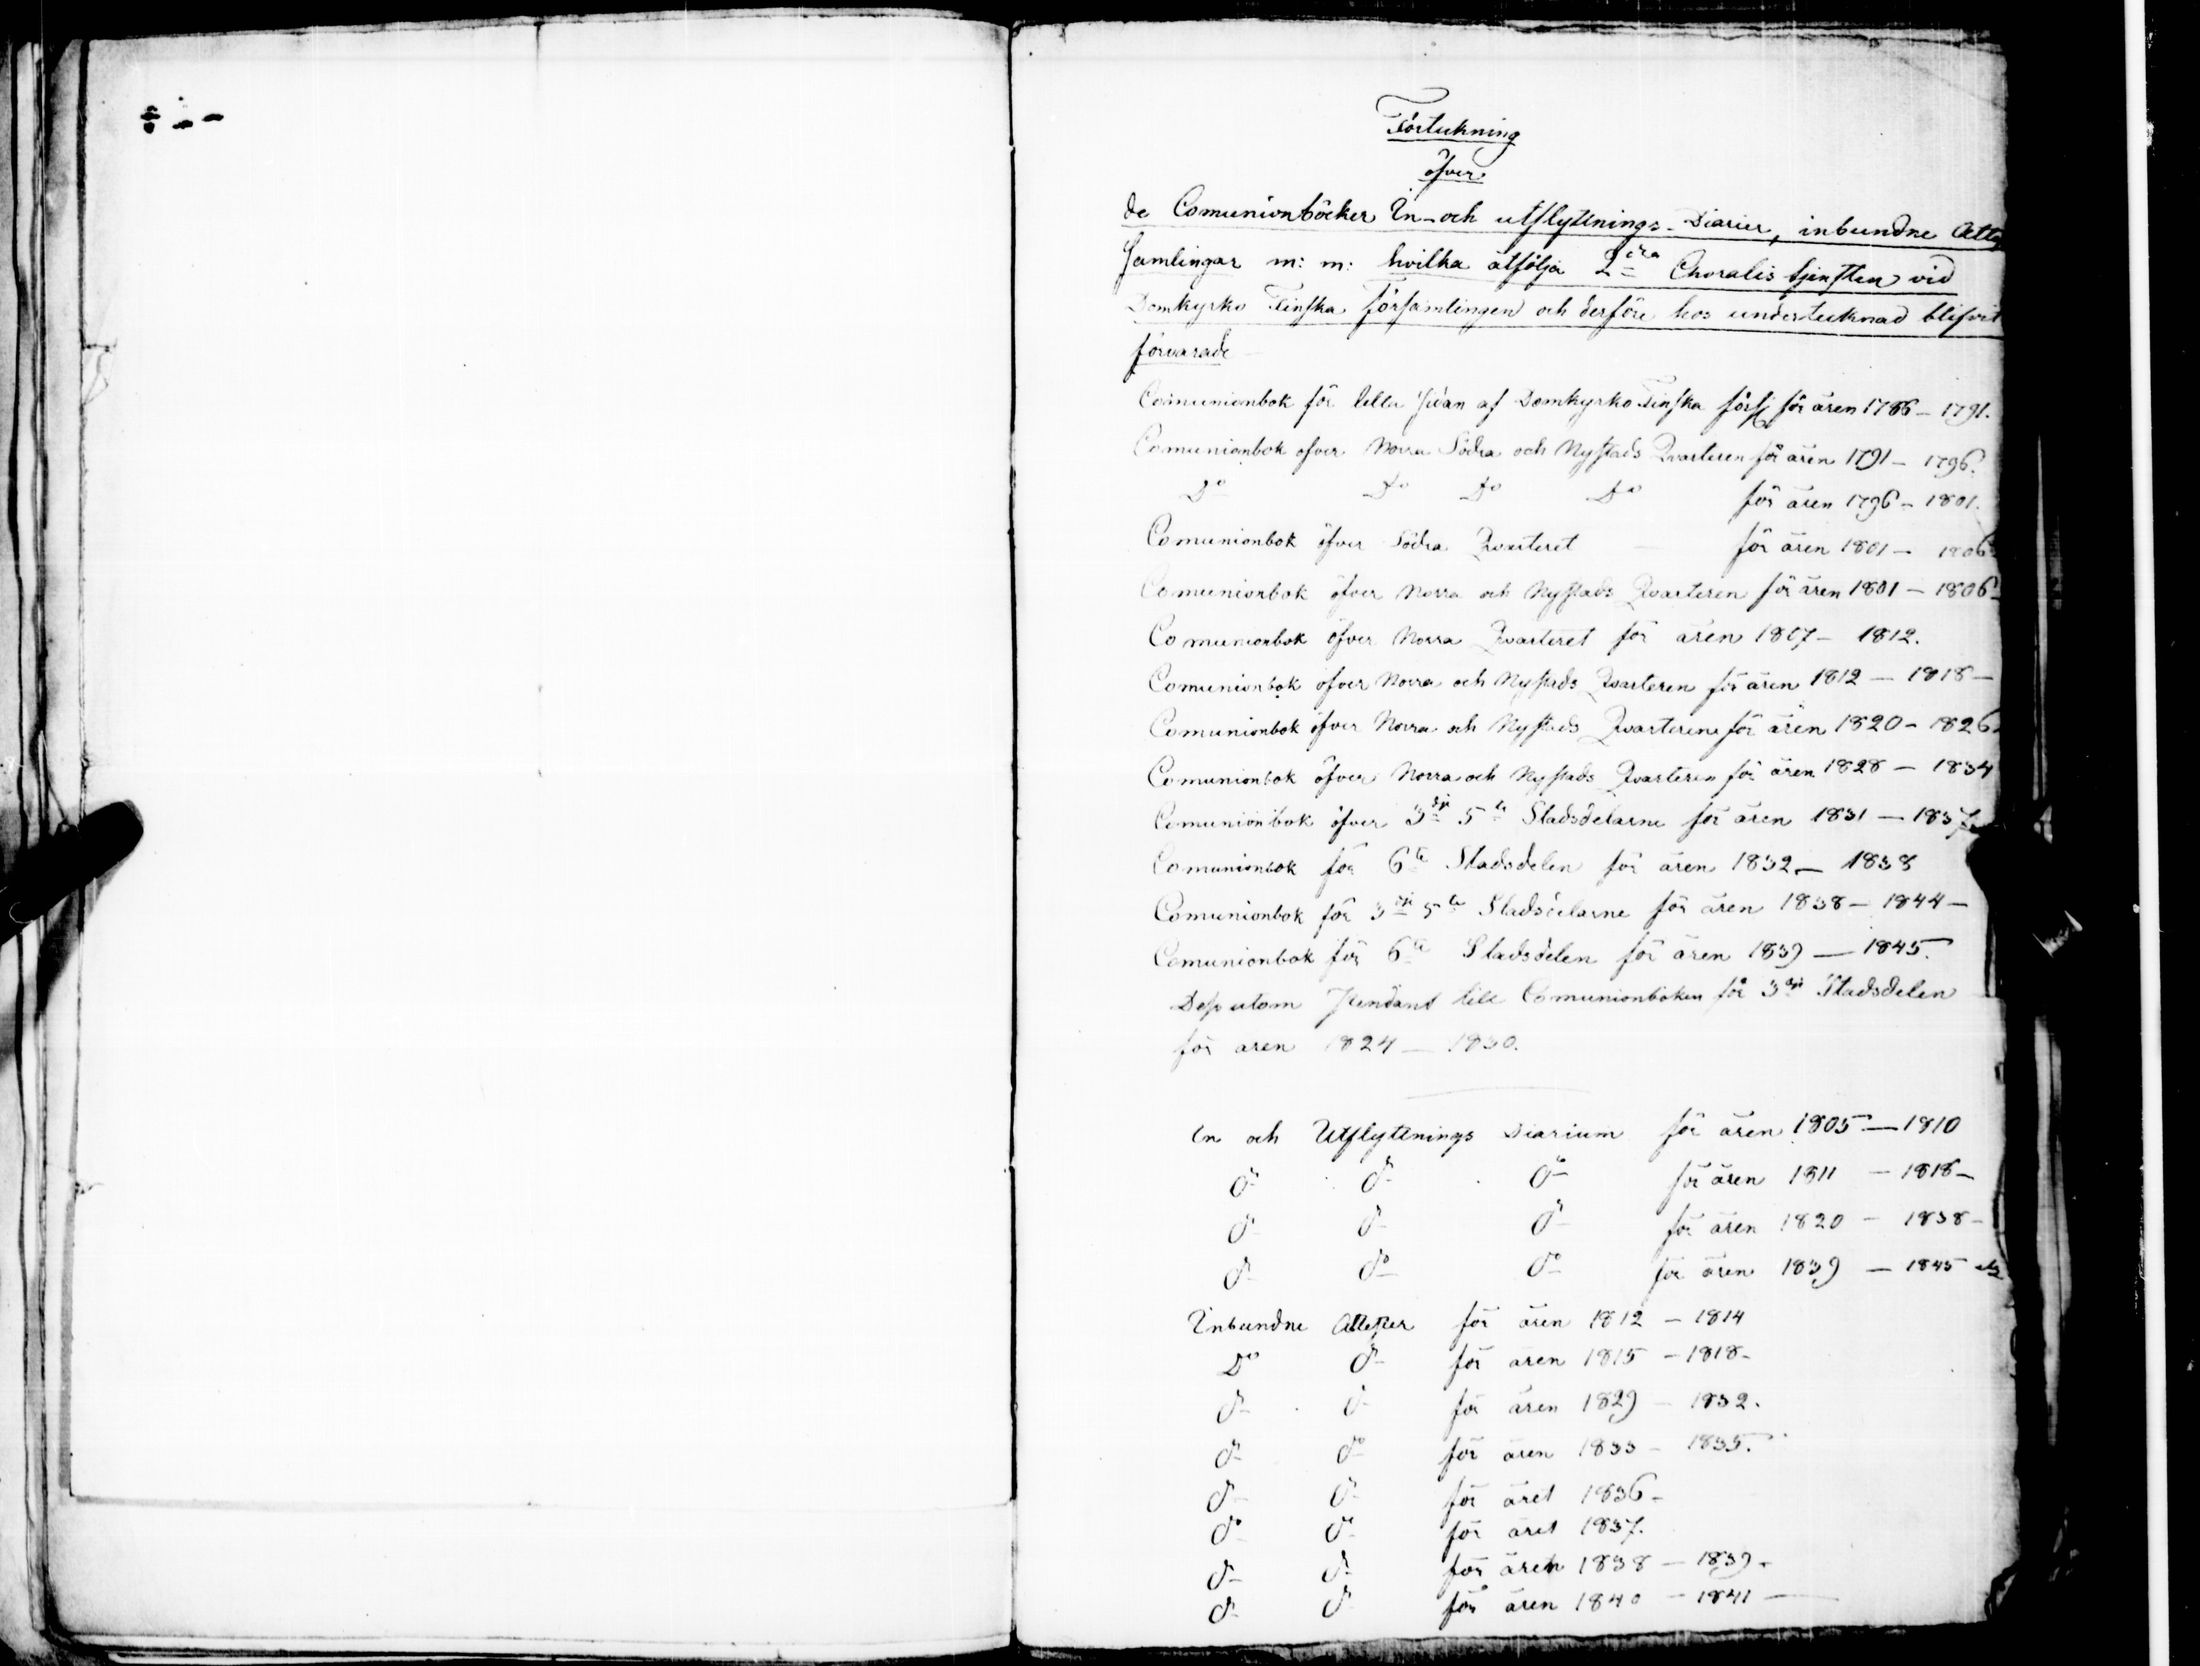 Förteckning
öfver
de Comunionböcker In- och utflyttnings-Diarier, inbundne Atte
samlingar m: m: hvilka åtfölja 2dra Choralis tjensten vid
Domkyrko Finska Församlingen och derföre hos undertecknad blifvit
förvarade
Comunionbok för lilla sidan af Domkyrko Finska förs för åren 1786 – 1791.
Comunionbok öfver Norra Södra och Nystads Qvarteren för åren 1791 – 1796.
Do Do Do Do för åren 1796 – 1801.
Comunionbok öfver Södra Qvarteret – för åren 1801 – 1806
Comunionbok öfver Norra och Nystads Qvarteren för åren 1801 – 1806
Comunionbok öfver Norra Qvarteret för åren 1807 – 1812.
Comunionbok öfver Norra och Nystads Qvarteren för åren 1812 – 1818 –
Comunionbok öfver Norra och Nystads Qvarteren för åren 1820 – 1826
Comunionbok öfver Norra och Nystads Qvarteren för åren 1828 – 1834
Comunionbok öfver 3dje 5te Stadsdelarne för åren 1831 – 1837
Comunionbok för 6te Stadsdelen för åren 1832 – 1838
Comunionbok för 3dje 5te Stadsdelarne för åren 1838 – 1844 –
Comunionbok för 6te Stadsdelen för åren 1839 – 1845.
Dessutom till Comunionboken för 3dje Stadsdelen
för åren 1824 – 1830.
In och Utflyttnings Diarium för åren 1805 – 1810
do do do för åren 1811 – 1818 –
do do do för åren 1820 – 1838 –
do do do för åren 1839 – 1845
Inbundne Attester för åren 1812 – 1814
Do do för åren 1815 – 1818 –
do do för åren 1829 – 1832.
do do för åren 1833 – 1835.
do do för året 1836 –
do do för året 1837.
do do för åren 1838 – 1839 –
do do för åren 1840 – 1841 –